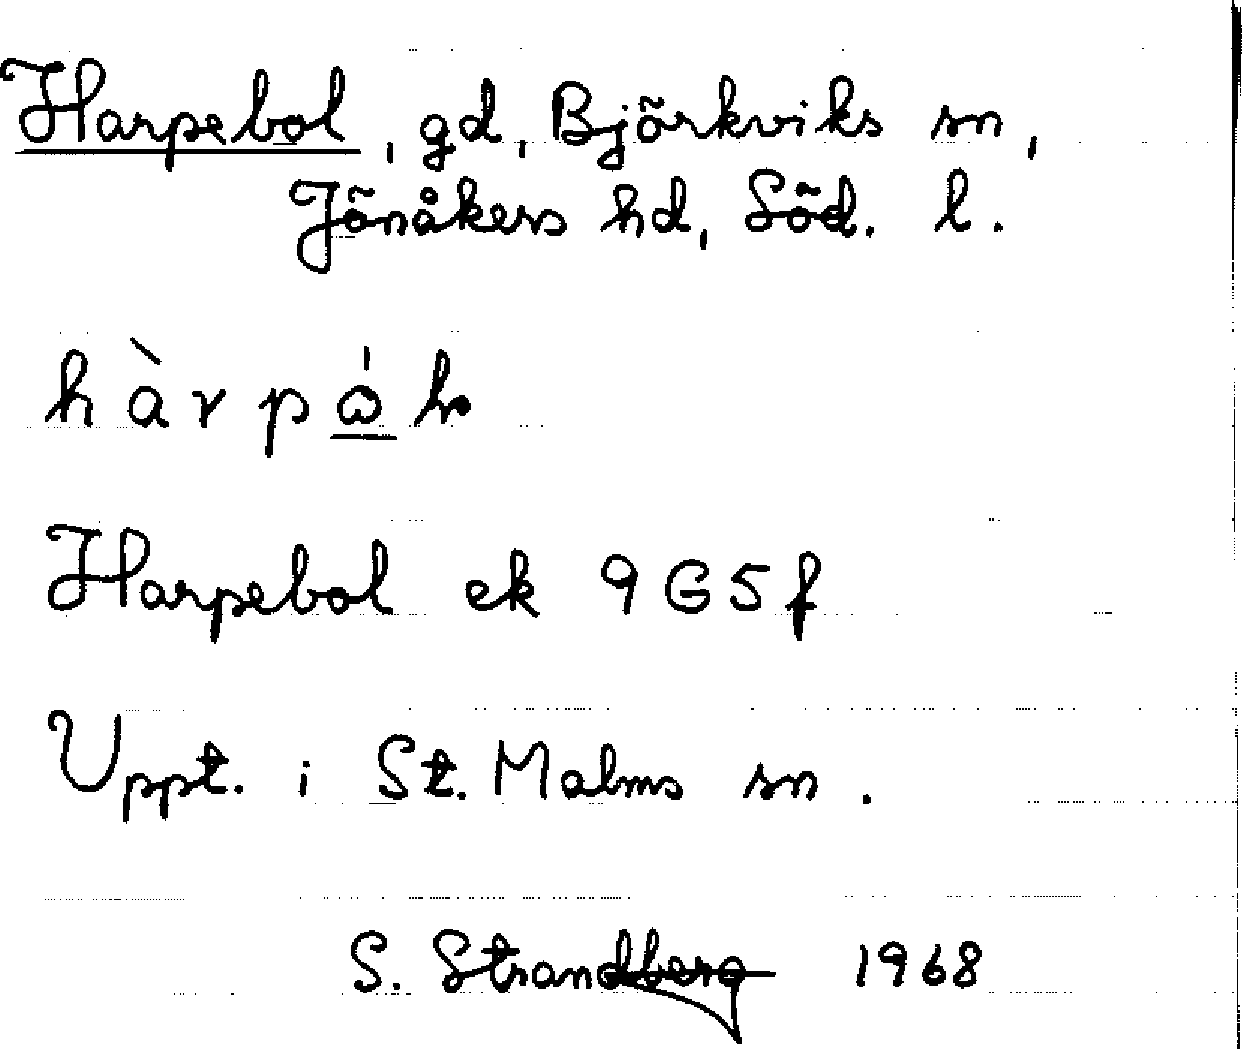 Harpebol, gd, Björkviks sn,
Jönåkers hd, Söd. l.
Harpebol ek 9G5f
Uppt. i St. Malms sn.
S. Strandberg 1968